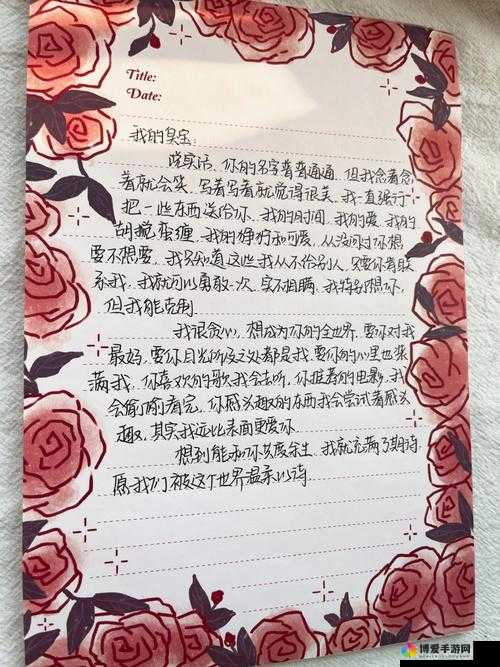 Title:
Date:
我的臭宝:
说实话,你的名字普普通通,但我念着念
着就会笑,写着写着就觉得很美,我一直强行
把一些东西送给你,我的时间,我的爱,我的
胡搅蛮缠,我的狰狞和可爱,从没问过你想
要不想要,我只知道这些我从不给别人,只要你肯联
系我,我就可以勇敢一次,实不相瞒,我特别想你,
但我能克制
我很贪心,想成为你的全世界,要你对我
最好,要你目光所及之处都是我,要你的心里也装
满我,你喜欢的歌我会去听,你推荐的电影,我
会偷偷看完,你感兴趣的东西我会尝试着感兴
趣,其实我远比表面更爱你.
想到能和你共度余生,我就充满了期待
愿我们被这个世界温柔以待
博爱手游网